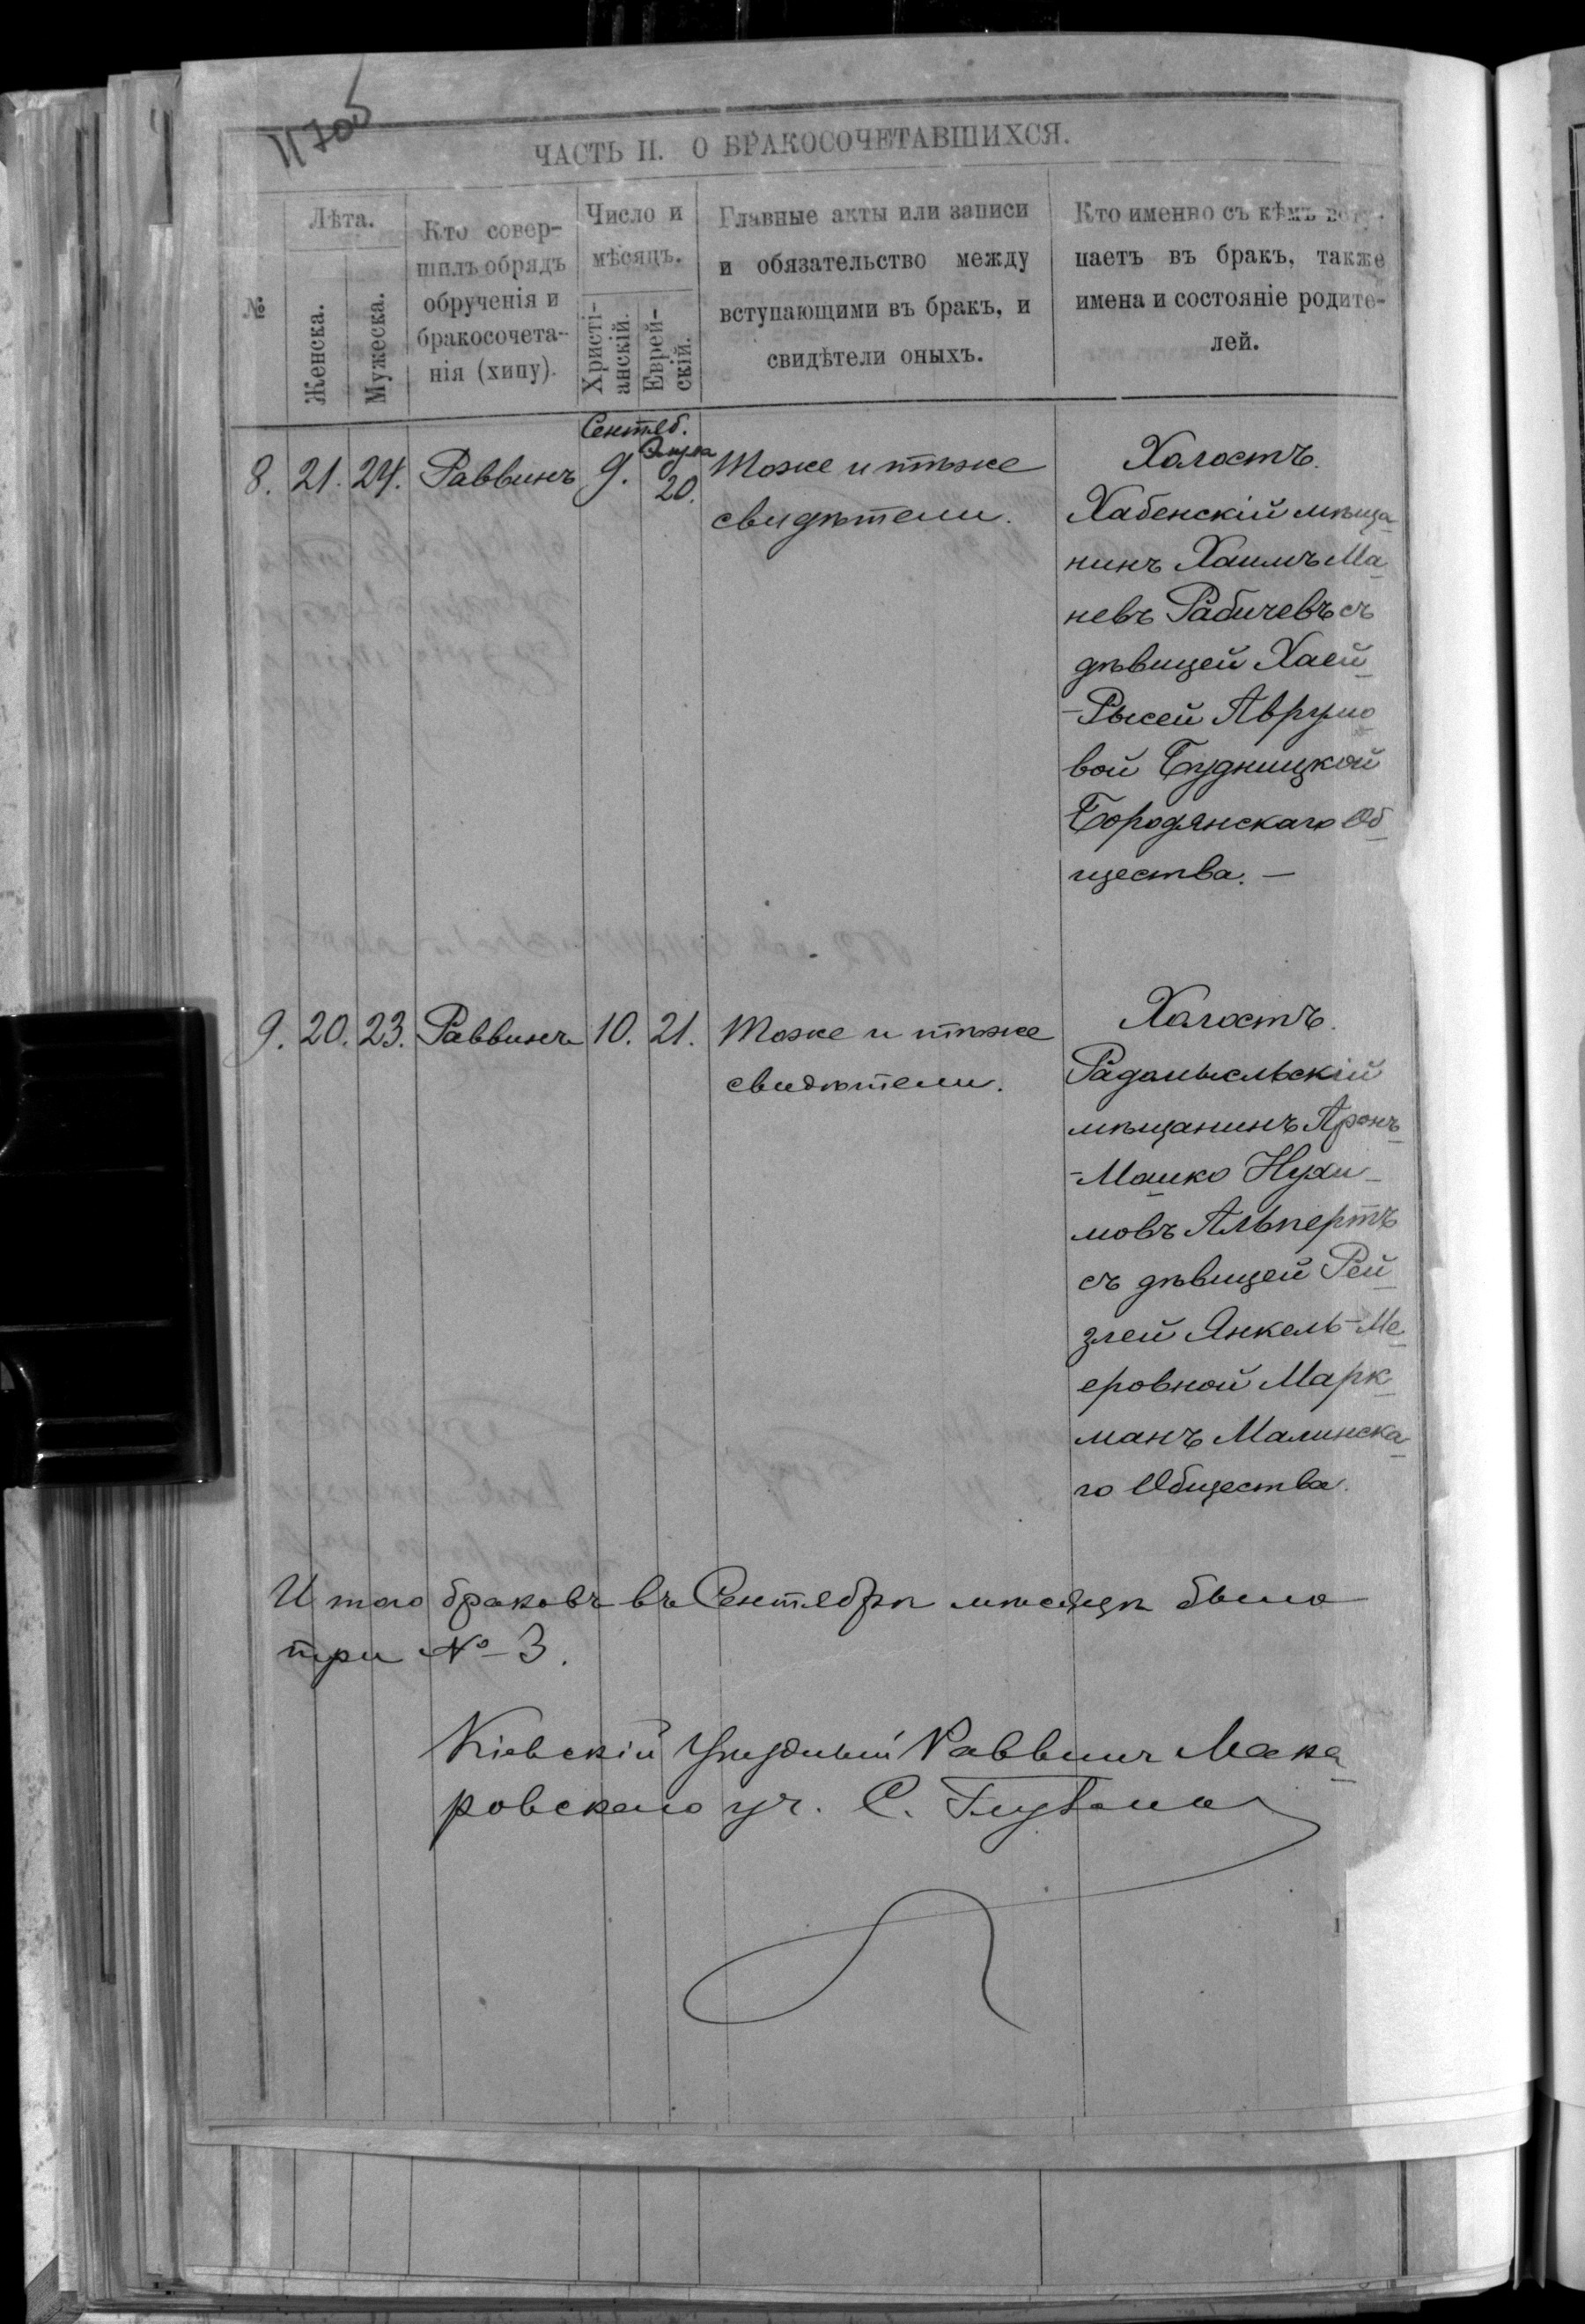 11705
ЧАСТЬ II. О БРАКОСОЧЕТАВШИХСЯ.
№
Лѣта.
Женска.
Мужеска.
Кто совер-
шилъ обрядъ
обрученія и
бракосочета-
нія (хипу).
Число и
мѣсяцъ.
Христі-
анскій.
Еврей-
скій.
Главные акты или записи
и обязательство между
вступающими въ бракъ, и
свидѣтели оныхъ.
Кто именно съ кѣмъ всту-
паетъ въ бракъ, также
имена и состояніе родите-
лей.
Сентяб.
Элула
8. 21. 24. Раввинъ 9. 20. Тоже и тѣже
свидѣтели.
Холостъ.
Хабенскій мѣща
нинъ Хаимъ Ма
невъ Рабичевъ съ
дѣвицей Хаей
-Рысей Аврумо
вой Будницкой
Бородянскаго Об
щества. —
9. 20. 23. Раввинъ 10. 21. Тоже и тѣже
свидѣтели.
Холостъ.
Радомысльскій
мѣщанинъ Аронъ
-Мошко Нухи
мовъ Альпертъ
съ дѣвицей Рей
злей Янкель-Ме
еровной Марк
манъ Малинска
го Общества.
Итого браковъ въ Сентябрѣ мѣсяцѣ было
три № 3.
Кіевскій Уѣздный Раввинъ Мака
ровскаго уч. С.